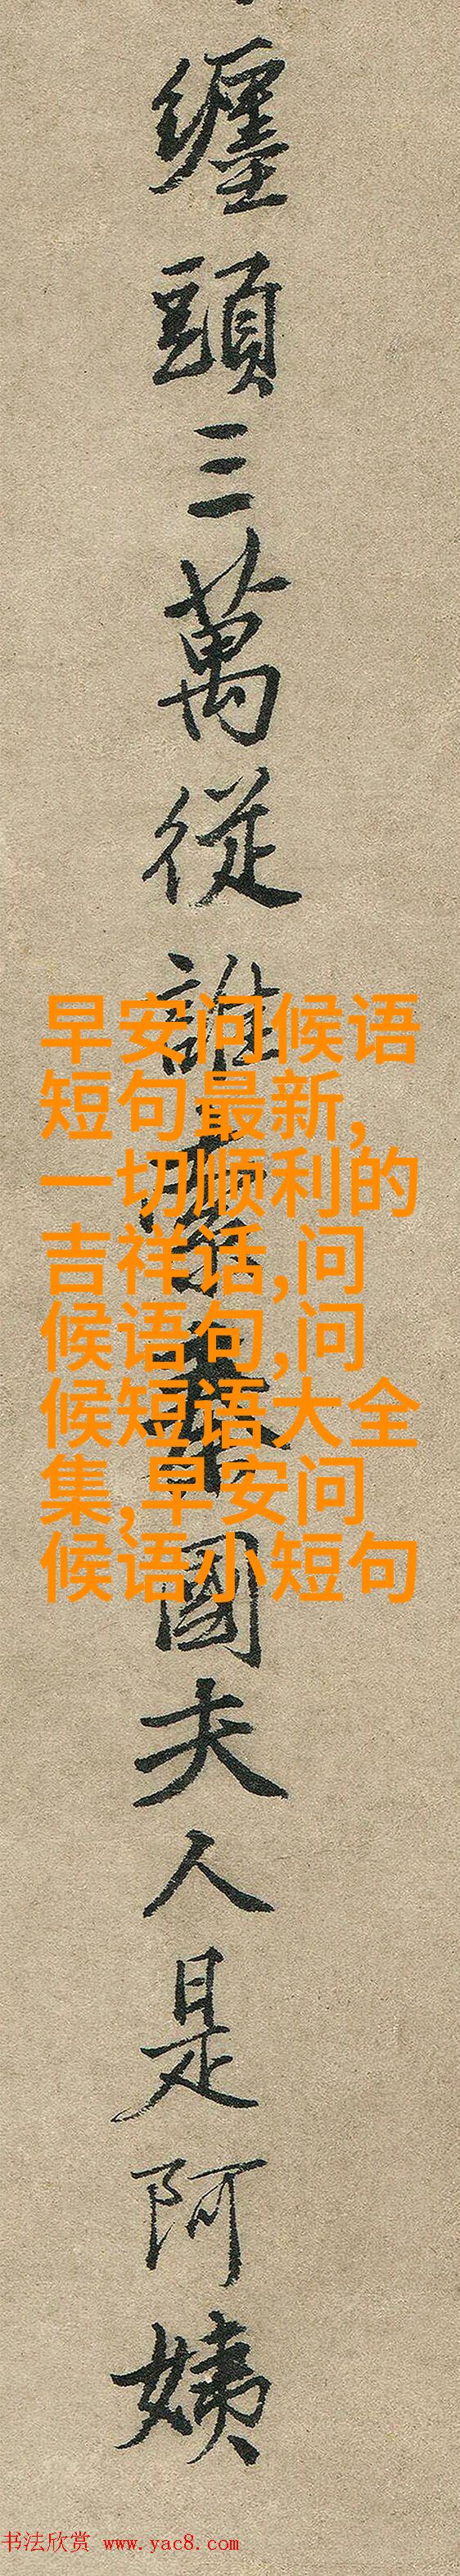 纏頭三萬從誰索秦國夫人是阿姨
早安问候语
短句最新,
一切顺利的
吉祥话,问
候语句,问
候短语大全
集,早安问
候语小短句
书法欣赏 www.yac8.com